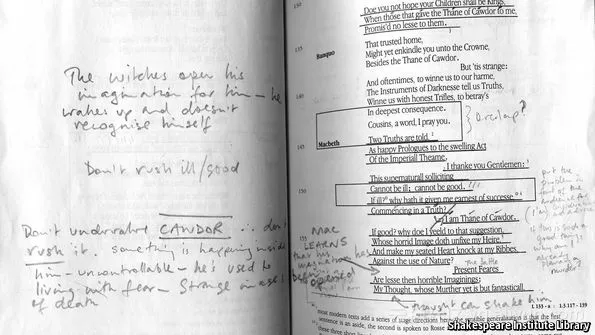 The witches open his
imagination for him – he
wakes up and doesn't
recognise himself
Don't rush ill/good
Don't undervalue CAWDOR ∴ don't
rush it. something is happening inside
him – uncontrollable – he's used to
living with fear – Strange images
of death
Doe you not hope your Children shall be Kings,
When those that gave the Thane of Cawdor to me,
Promis'd no lesse to them.
135
Banquo
That trusted home,
Might yet enkindle you unto the Crowne,
Besides the Thane of Cawdor.
But 'tis strange:
And oftentimes, to winne us to our harme,
The Instruments of Darknesse tell us Truths,
140
Winne us with honest Trifles, to betray's
In deepest consequence.
Cousins, a word, I pray you.
Overlap?
Macbeth
Two Truths are told,
145
As happy Prologues to the swelling Act
Of the Imperiall Theame.
I thanke you Gentlemen:
This supernaturall solliciting
Cannot be ill; cannot be good.
150
If ill? why hath it given me earnest of successe,
Commencing in a Truth?
I am Thane of Cawdor.
If good? why doe I yeeld to that suggestion,
155
Whose horrid Image doth unfixe my Heire,
And make my seated Heart knock at my Ribbes,
Against the use of Nature?
Present Fears
Are lesse then horrible Imaginings:
My Thought, whose Murther yet is but fantasticall,
MAC
LEARNS
put the
of the
audience
good
already
murder
thought can shake him
L 155 - 1.3.117 - 139
most modern texts add a series of stage directions here
sentence is an aside, the second is spoken to Rosse
Shakespeare Institute Library